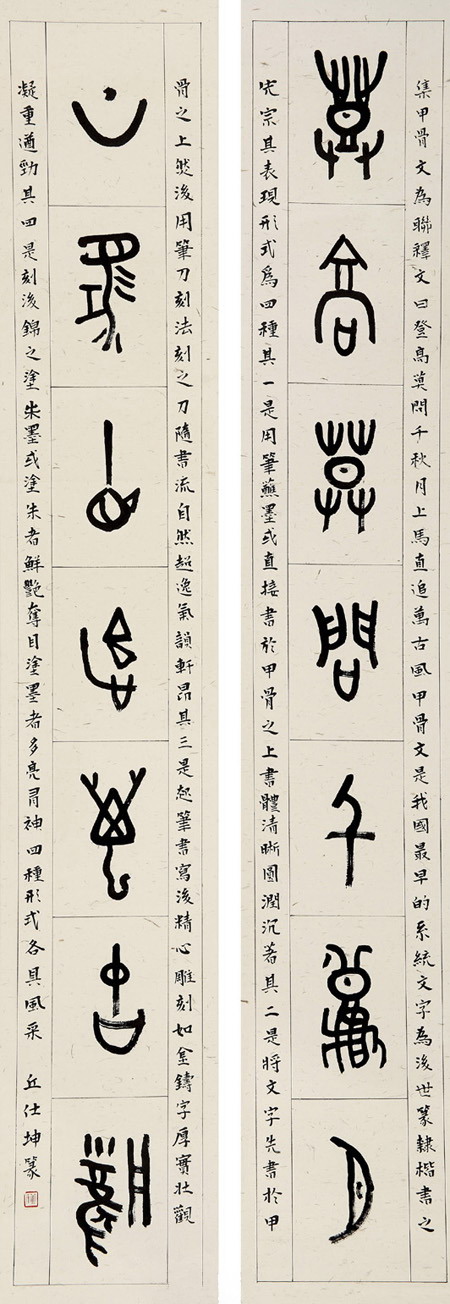 集甲骨文為聯釋文曰登高莫問千秋月上馬直追萬古風甲骨文是我國最早的系統文字為後世篆隸楷書之
登高莫問千秋月
先宗其表現形式為四種其一是用筆蘸墨或直接書於甲骨之上書體清晰圓潤沉著其二是將文字先書於甲
骨之上然後用筆刀刻法刻之刀隨書流自然超逸氣韻軒昂其三是起筆書寫後精心雕刻如金鑄字厚實壯觀
上馬直追萬古風
凝重遒勁其四是刻後錦之塗朱墨或塗朱者鮮艷奪目塗墨者多亮有神四種形式各具風采 丘仕坤篆